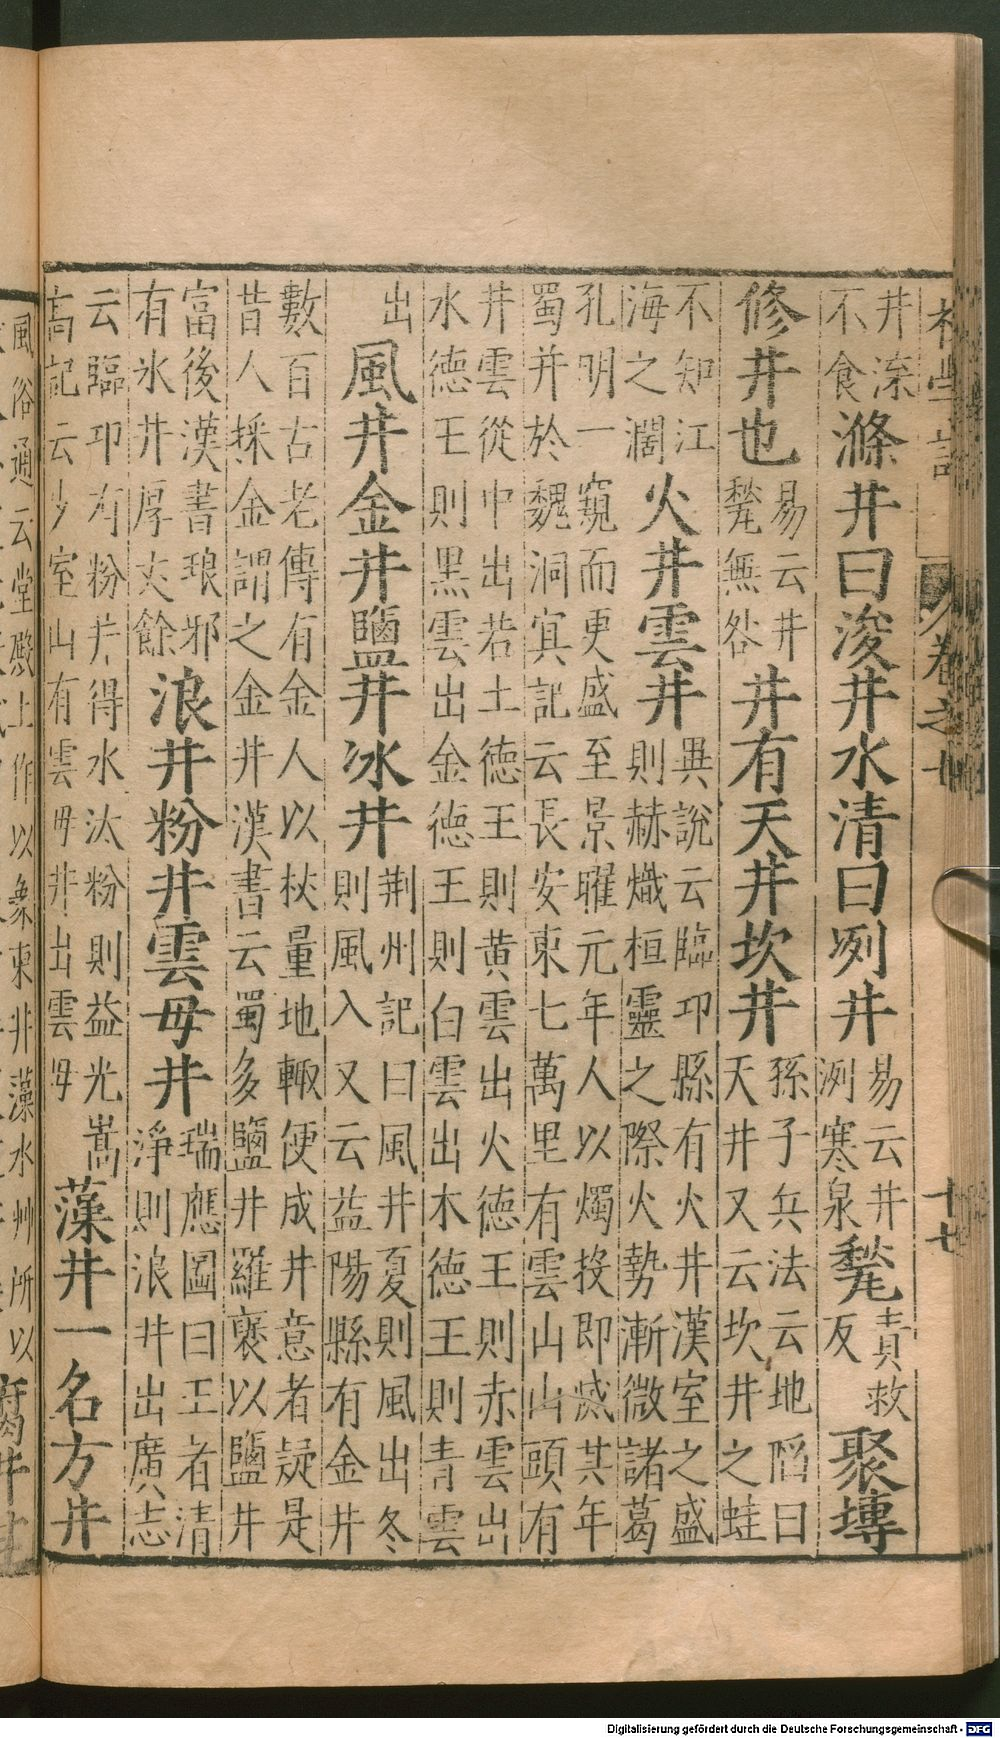 井渫不食滌井曰浚井水清曰冽井易云井洌寒泉甃責救反聚塼
修井也易云井甃無咎井有天井坎井孫子兵法云地陷曰天井又云坎井之蛙
不知江海之濶火井雲井異說云臨卭縣有火井漢室之盛則赫熾桓靈之際火勢漸微諸葛
孔明一窺而更盛至景曜元年人以燭投即滅其年蜀并於魏洞冥記云長安東七萬里有雲山山頭有
井雲從中出若土德王則黄雲出火德王則赤雲出水德王則黒雲出金德王則白雲出木德王則青雲
出風井金井鹽井冰井荆州記曰風井夏則風出冬則風入又云益陽縣有金井
數百古老傳有金人以杖量地輙便成井意者疑是昔人採金謂之金井漢書云蜀多鹽井羅裒以鹽井
富後漢書琅邪有氷井厚丈餘浪井粉井雲母井瑞應圖曰王者清淨則浪井出廣志
云臨卭有粉井得水汰粉則益光嵩高記云少室山有雲母井出雲母藻井一名方井
風俗通云堂殿上作以象東井藻水艸所以
卷之
十七
Digitalisierung gefördert durch die Deutsche Forschungsgemeinschaft - DFG